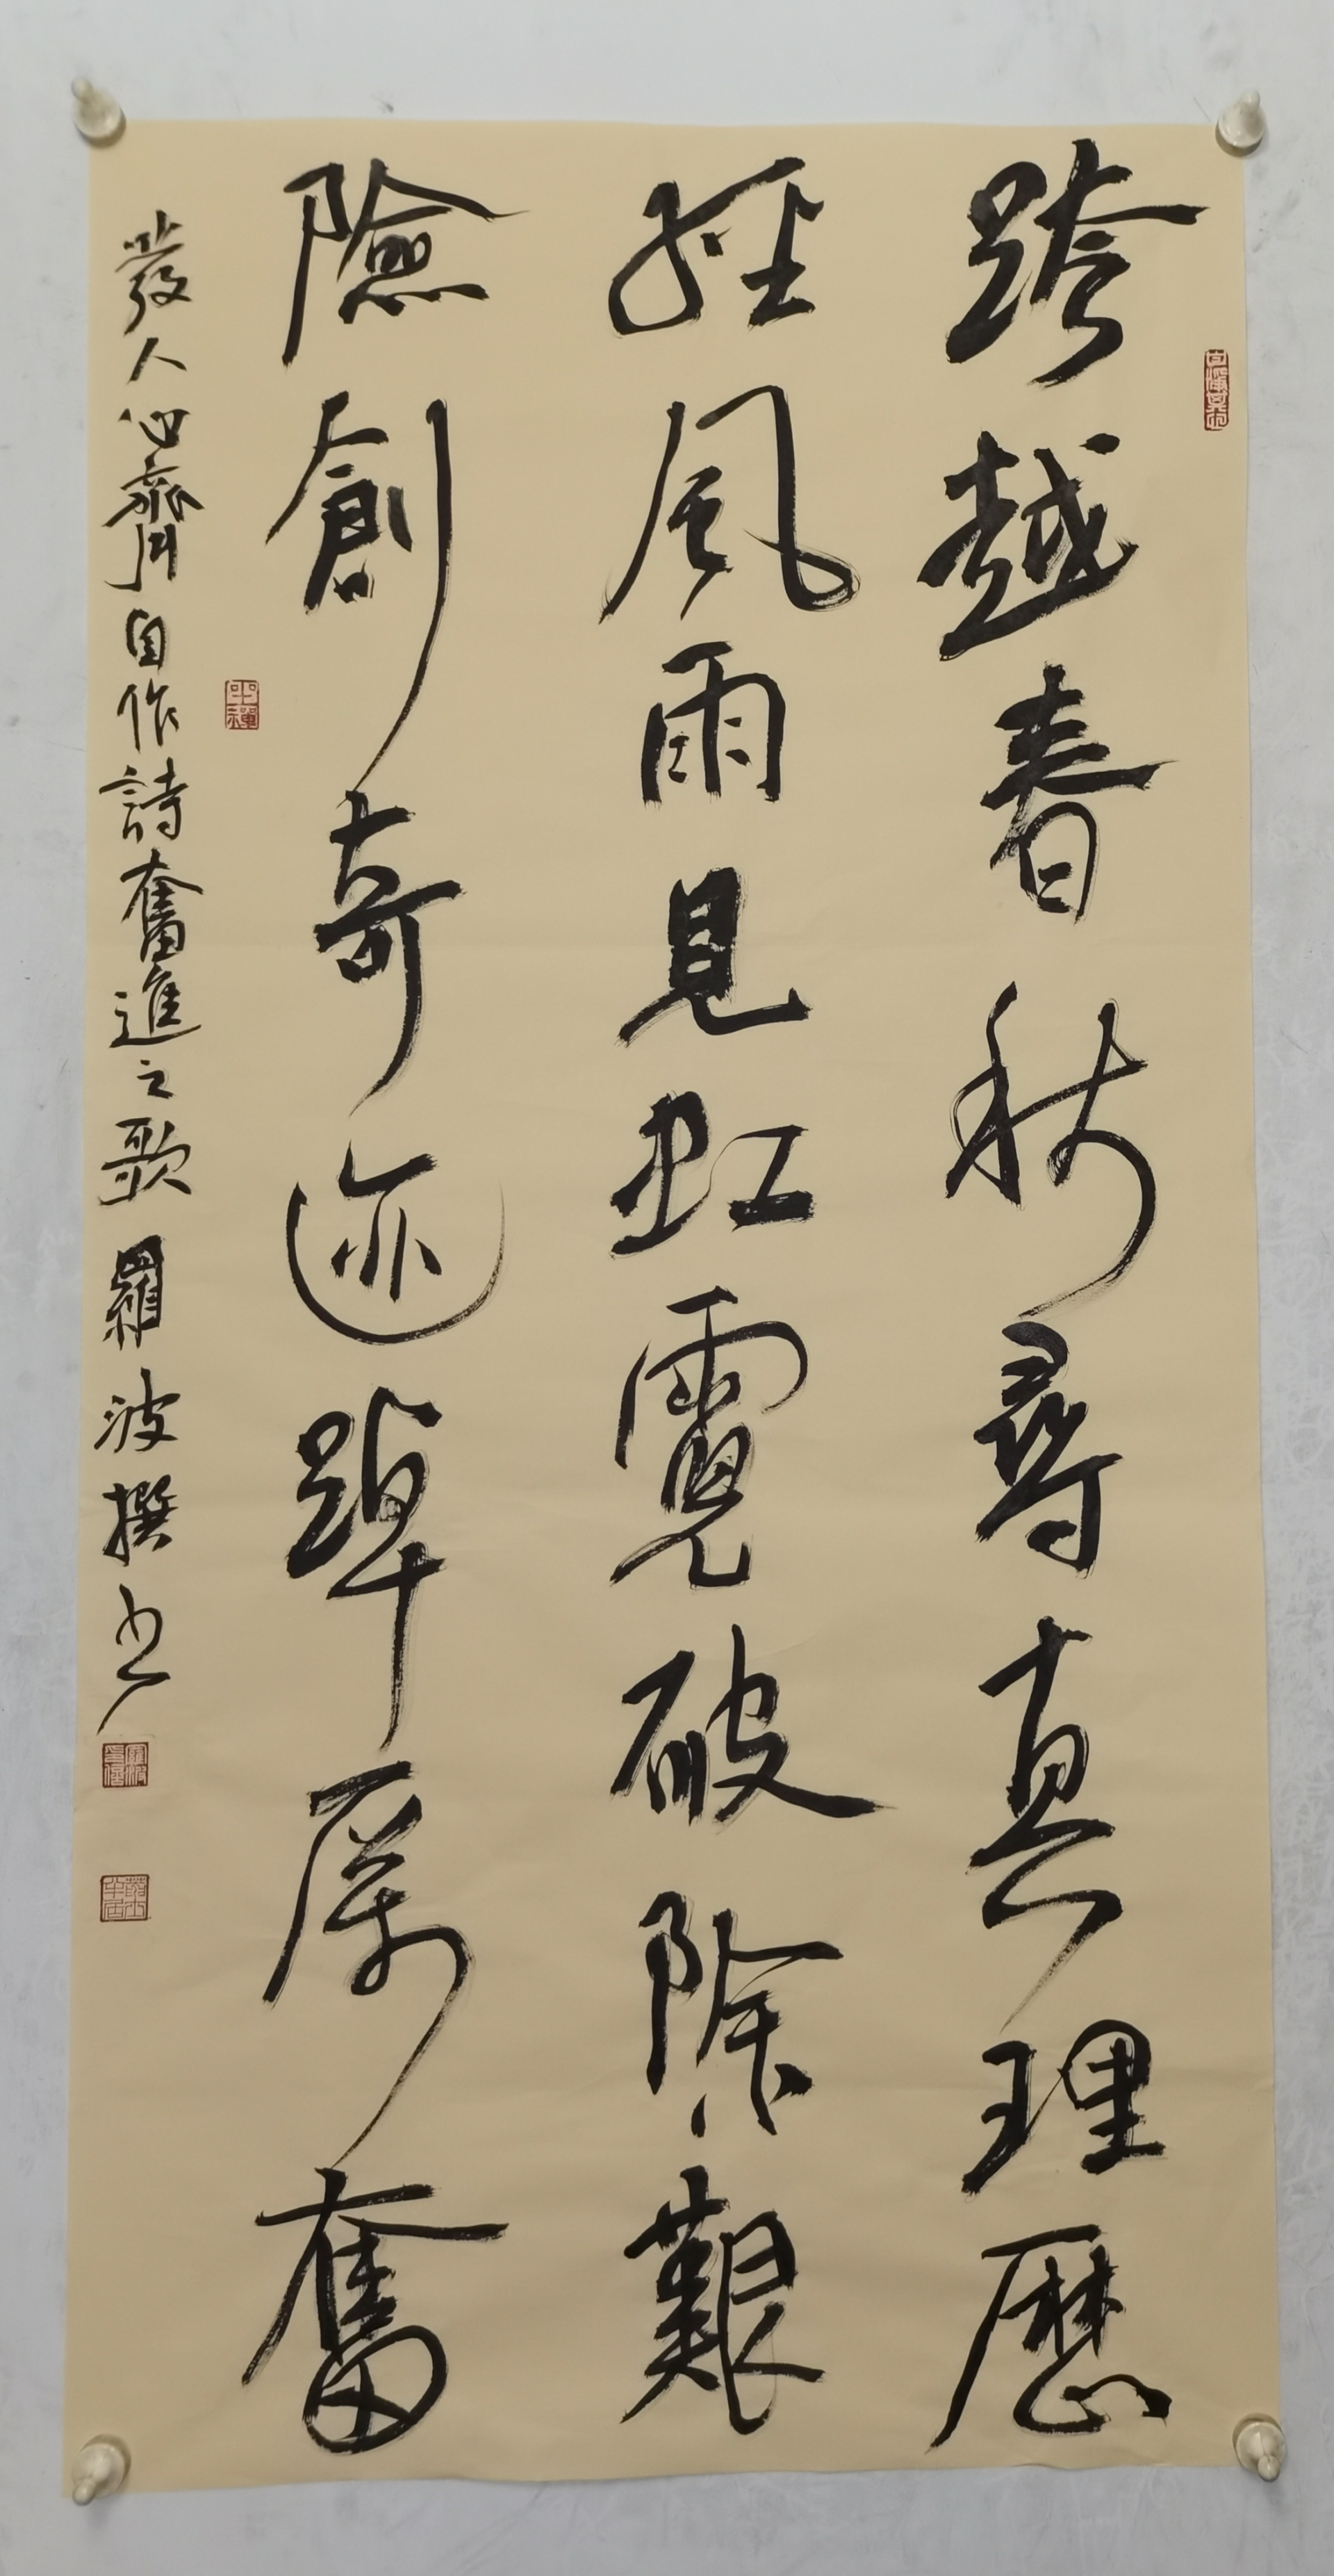 跨越春秋尋真理歷
經風雨見虹霓破除艱
險創奇迹踔厲奮
發人心齊自作詩奮進之歌羅波撰书